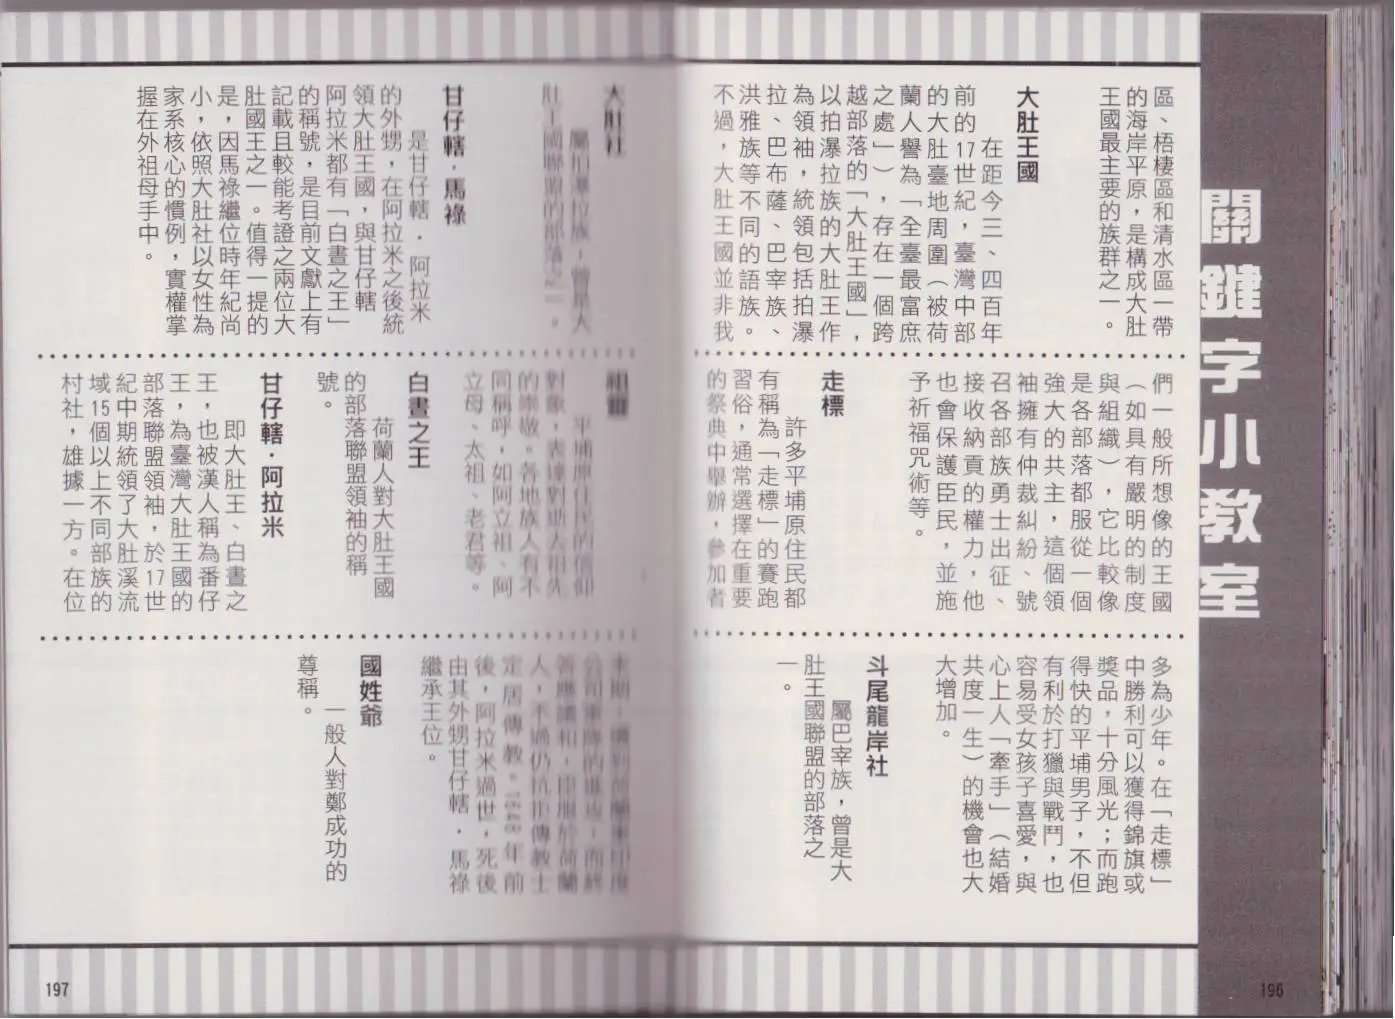 關鍵字小教室
區、梧棲區和清水區一帶
的海岸平原，是構成大肚
王國最主要的族群之一。
大肚王國
在距今三、四百年
前的17世紀，臺灣中部
的大肚臺地周圍（被荷
蘭人譽為「全臺最富庶
之處」），存在一個跨
越部落的「大肚王國」，
以拍瀑拉族的大肚王作
為領袖，統領包括拍瀑
拉、巴布薩、巴宰族、
洪雅族等不同的語族。
不過，大肚王國並非我
們一般所想像的王國
（如具有嚴明的制度
與組織），它比較像
是各部落都服從一個
強大的共主，這個領
袖擁有仲裁糾紛、號
召各部族勇士出征、
接收納貢的權力，他
也會保護臣民，並施
予祈福咒術等。
走標
許多平埔原住民都
有稱為「走標」的賽跑
習俗，通常選擇在重要
的祭典中舉辦，參加者
多為少年。在「走標」
中勝利可以獲得錦旗或
獎品，十分風光；而跑
得快的平埔男子，不但
有利於打獵與戰鬥，也
容易受女孩子喜愛，與
心上人「牽手」（結婚
共度一生）的機會也大
大增加。
斗尾龍岸社
屬巴宰族，曾是大
肚王國聯盟的部落之
一。
196
大肚社
屬拍瀑拉族，曾是大
肚王國聯盟的部落之一。
甘仔轄．馬祿
是甘仔轄．阿拉米
的外甥，在阿拉米之後統
領大肚王國，與甘仔轄
阿拉米都有「白晝之王」
的稱號，是目前文獻上有
記載且較能考證之兩位大
肚國王之一。值得一提的
是，因馬祿繼位時年紀尚
小，依照大肚社以女性為
家系核心的慣例，實權掌
握在外祖母手中。
祖靈
平埔原住民的信仰
對象，表達對逝去祖先
的崇敬。各地族人有不
同稱呼，如阿立祖、阿
立母、太祖、老君等。
白晝之王
荷蘭人對大肚王國
的部落聯盟領袖的稱
號。
甘仔轄．阿拉米
即大肚王、白晝之
王，也被漢人稱為番仔
王，為臺灣大肚王國的
部落聯盟領袖，於17世
紀中期統領了大肚溪流
域15個以上不同部族的
村社，雄據一方。在位
末期，遇到荷蘭東印度
公司軍隊的進攻，而終
答應議和，臣服於荷蘭
人，不過仍抗拒傳教士
定居傳教。1648年前
後，阿拉米過世，死後
由其外甥甘仔轄．馬祿
繼承王位。
國姓爺
一般人對鄭成功的
尊稱。
197